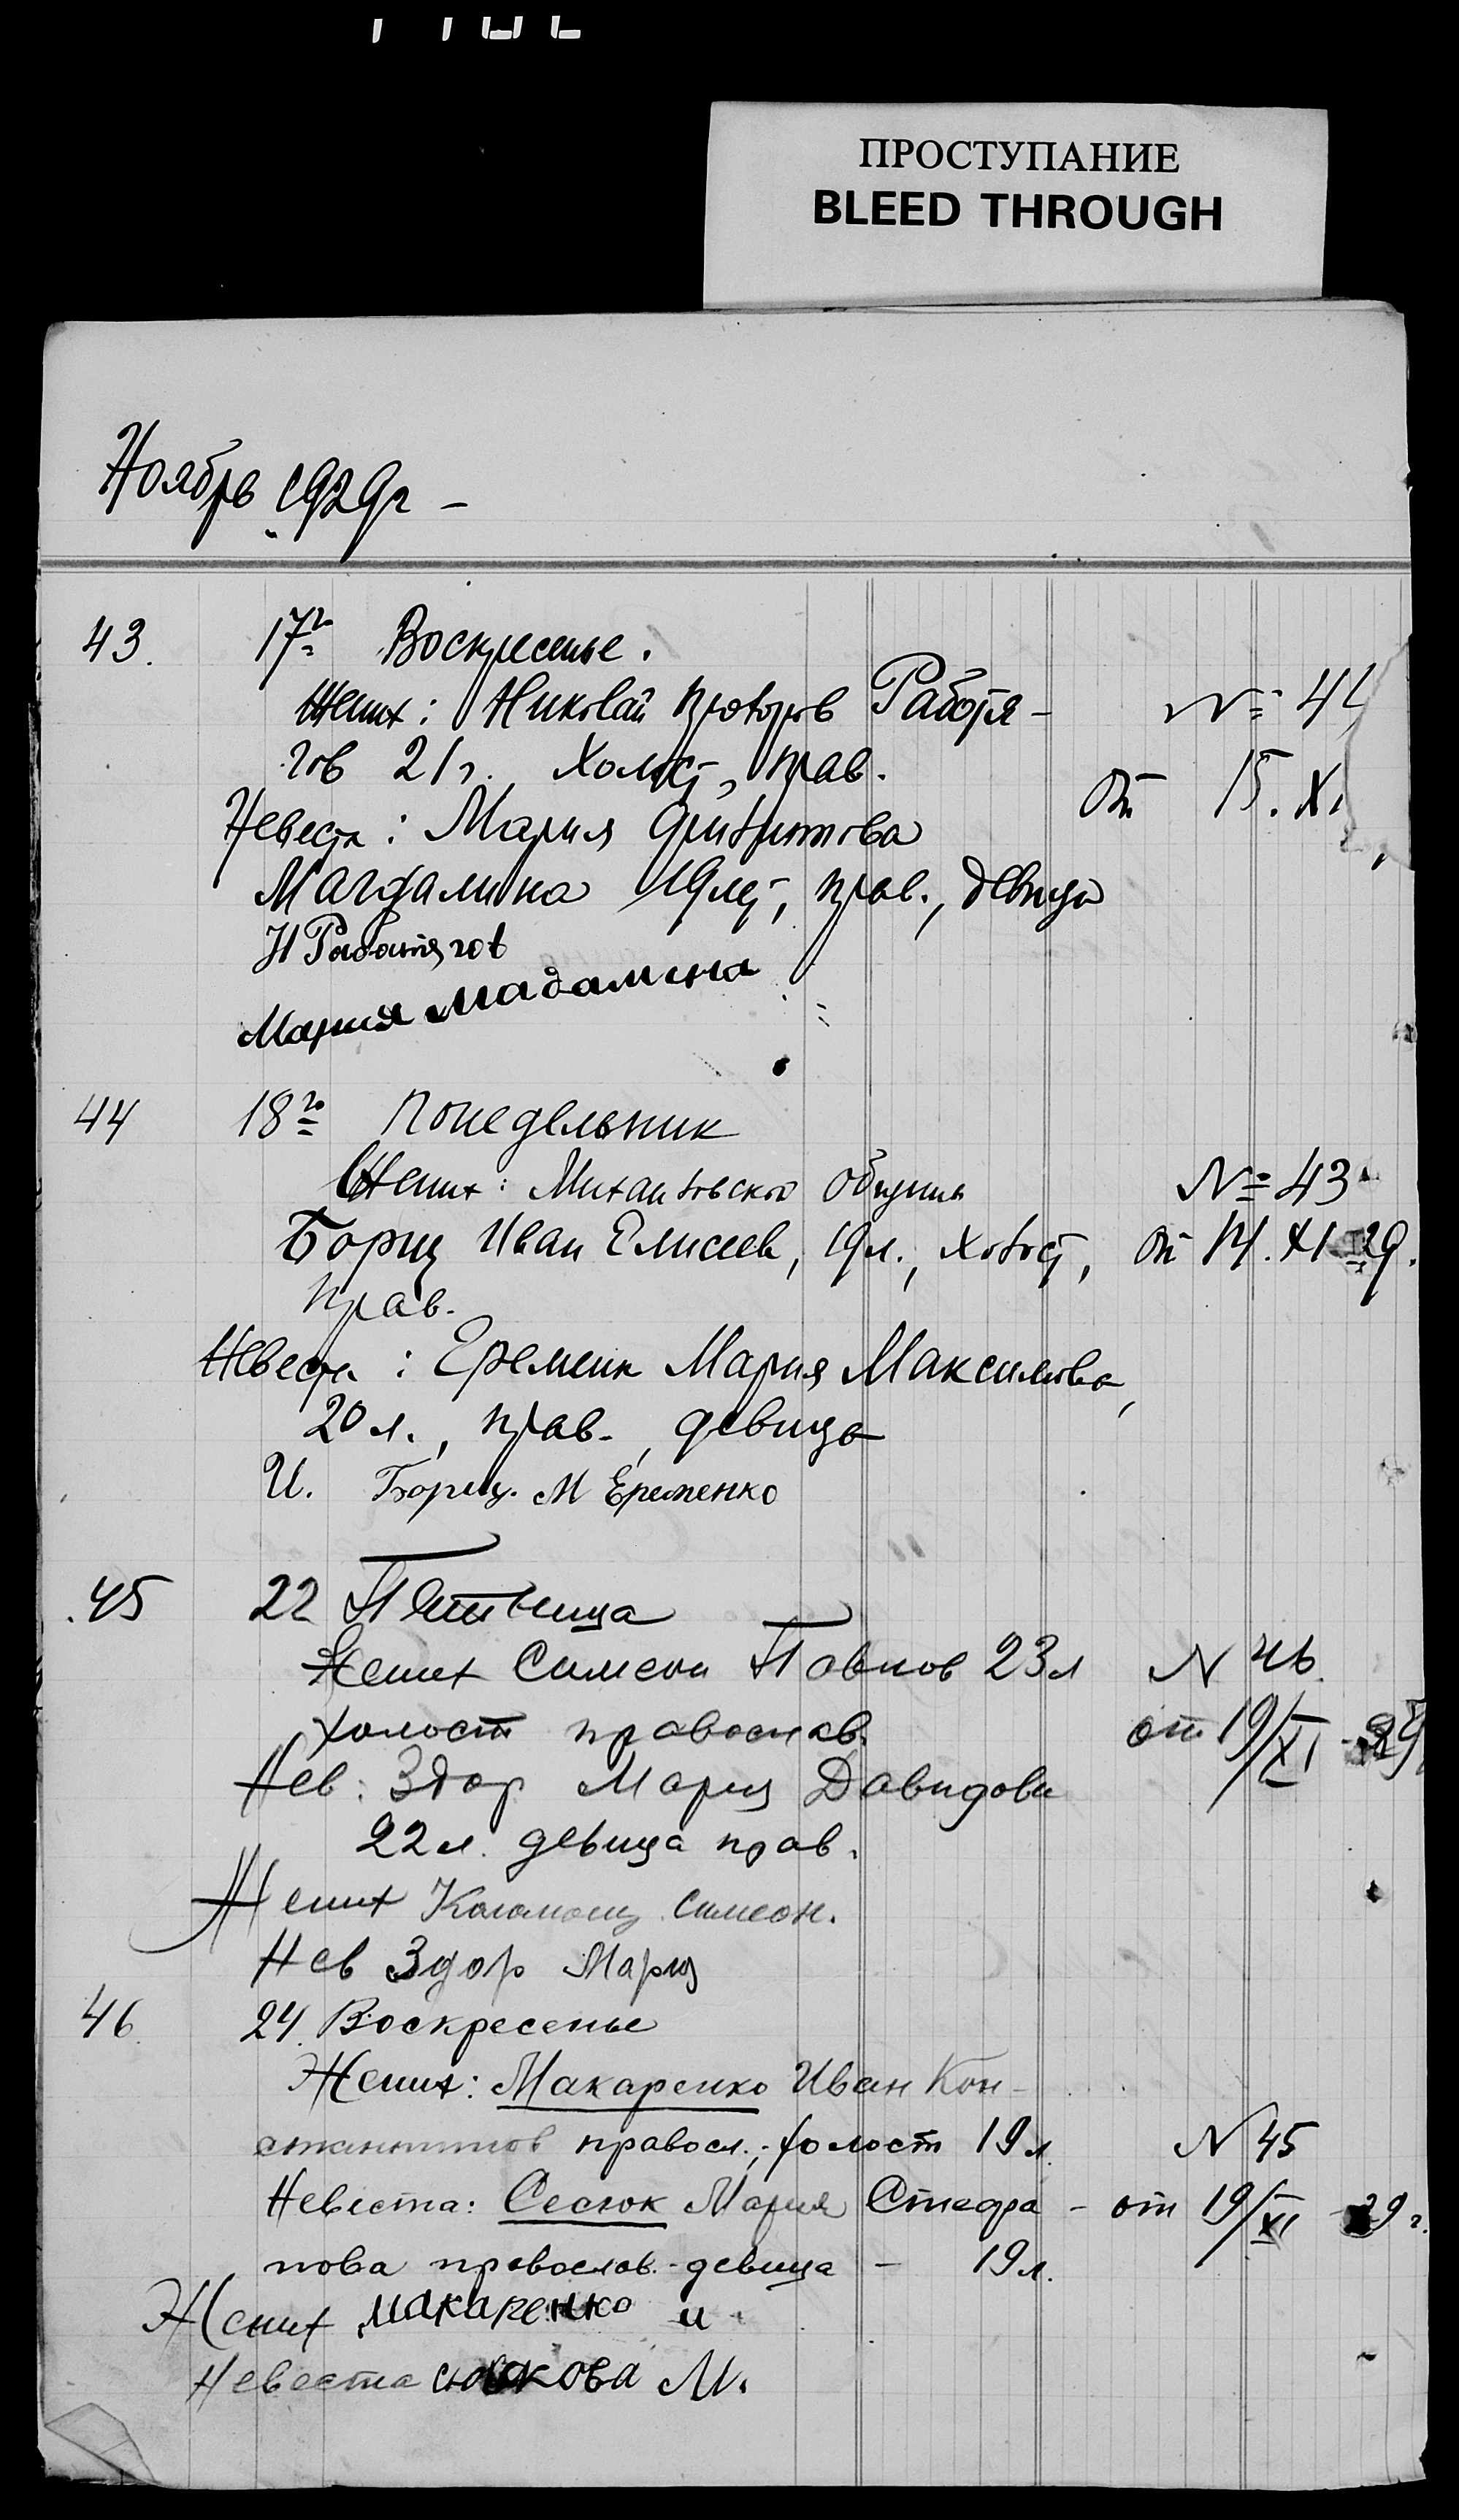 ПРОСТУПАНИЕ
BLEED THROUGH
Ноябрь 1929г –
43. 17го Воскресенье.
Жених: Николай Работя- № 4
гов 21г., Холост, прав. от 15. XI
Невеста: Мария
Магдалина 19лет, прав., девица
Н Работягов
Мария Мадалина
44 18го Понедельник
Жених: Михайловской общины № 43
Борщ Иван Елисеев, 19л., холост, от 14. XI 29.
прав.
Невеста: Еременк Мария Максимова,
20 л., прав., девица
И. Борщ. М Еременко
45 22 Пятница
Жених Симеон Павлов 23л N 46.
холост православ. от 19/XI - 29
Нев: Здор Мария Давидова
22 л. девица прав.
Жених Симеон.
Нев Здор Мария
46. 24. Воскресенье
Жених: Макаренко Иван Кон-
стантинов правосл., холост 19 л. N 45
Невеста: Сесюк Мария Стефа- от 19/XI 29 г.
нова православ. - девица - 19л.
Жених Макаренко и
Невеста М.